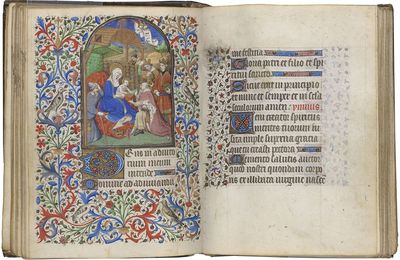 Eus in adiuto
rium meum
intende
Domine ad adiuuand
me festina
Gloria patri et filio et spi
ritui sancto
Sicut erat in principio
et nunc et semper et in secula
seculorum amen. ymnus
Veni creator spiritus
mentes tuorum uisi
ta imple superna gratia
que tu creasti pectora
Memento salutis auctor
quod nostri quondam corpo
ris ex illibata uirgine nasce